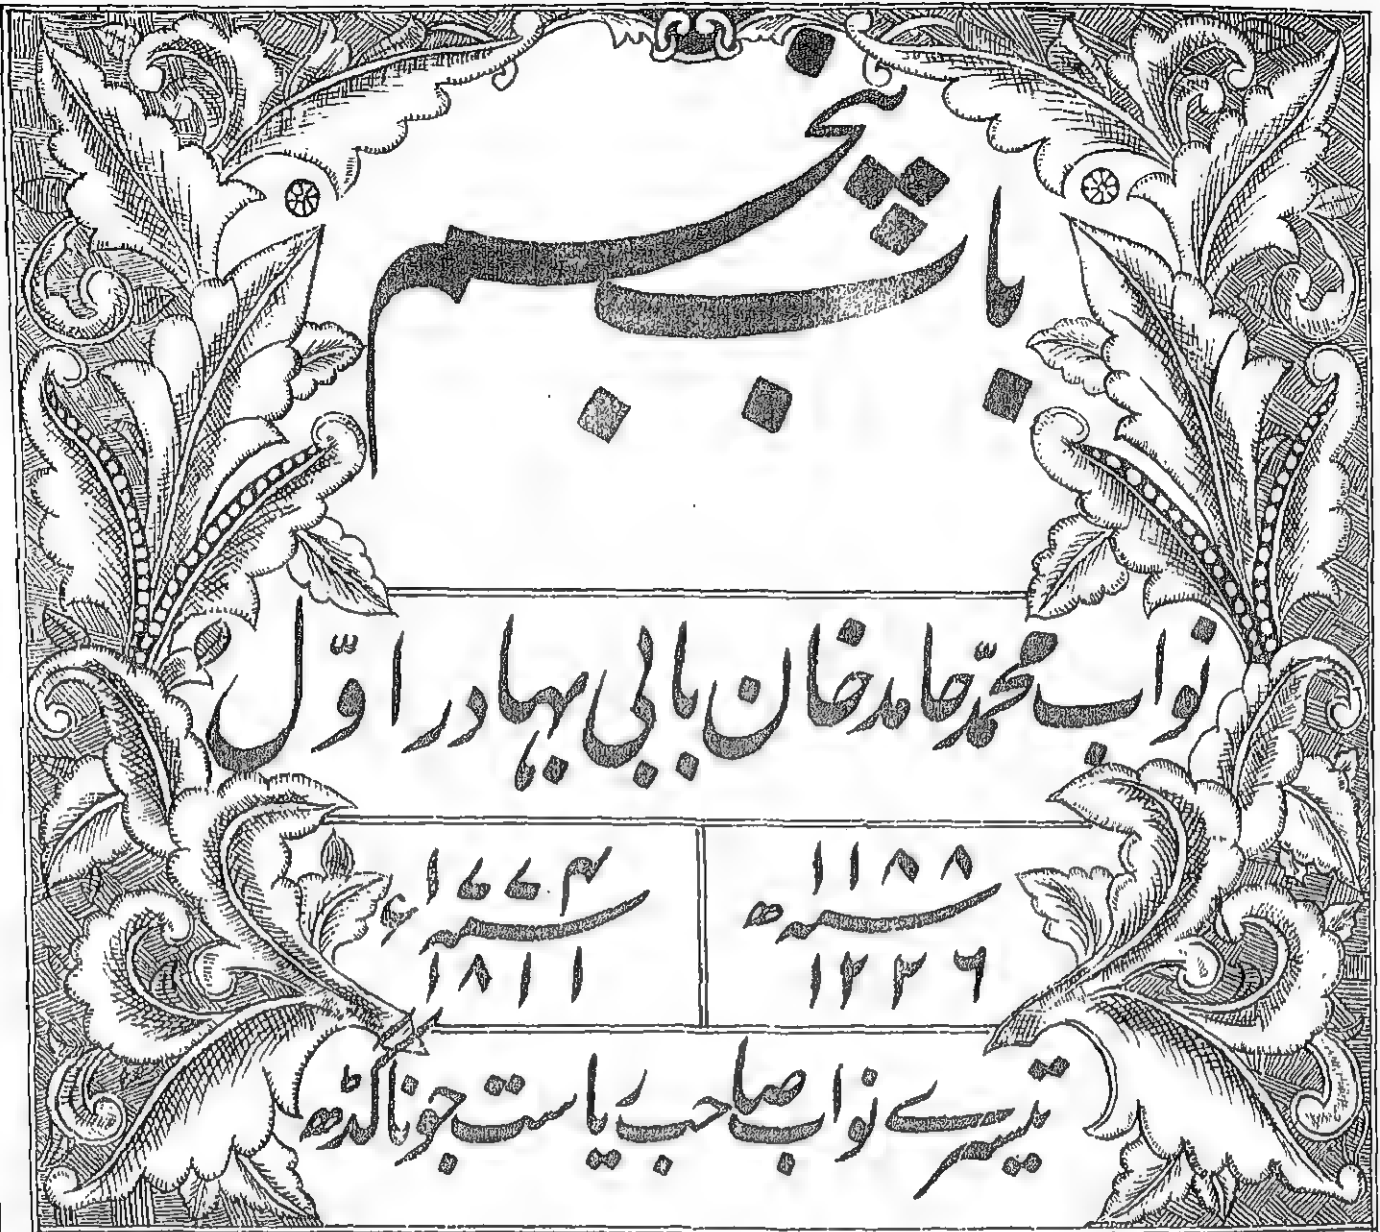 باب پنجم
نواب محمّد حامد خان بابی بہادر اوّل
۱۱۸۸
سنہ ھ
۱۲۲۶
۱۷۷۴
سنہ ء
۱۸۱۱
تیسرے نواب صاحب ریاست جوناگڈھ